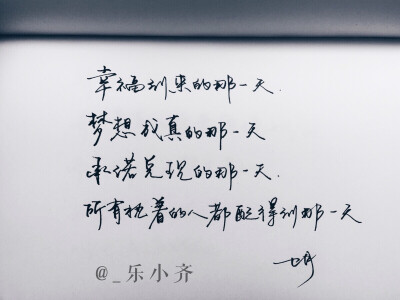 幸福到来的那一天.
梦想成真的那一天
承诺兑现的那一天.
所有挖着的人都配得到那一天
@_乐小齐